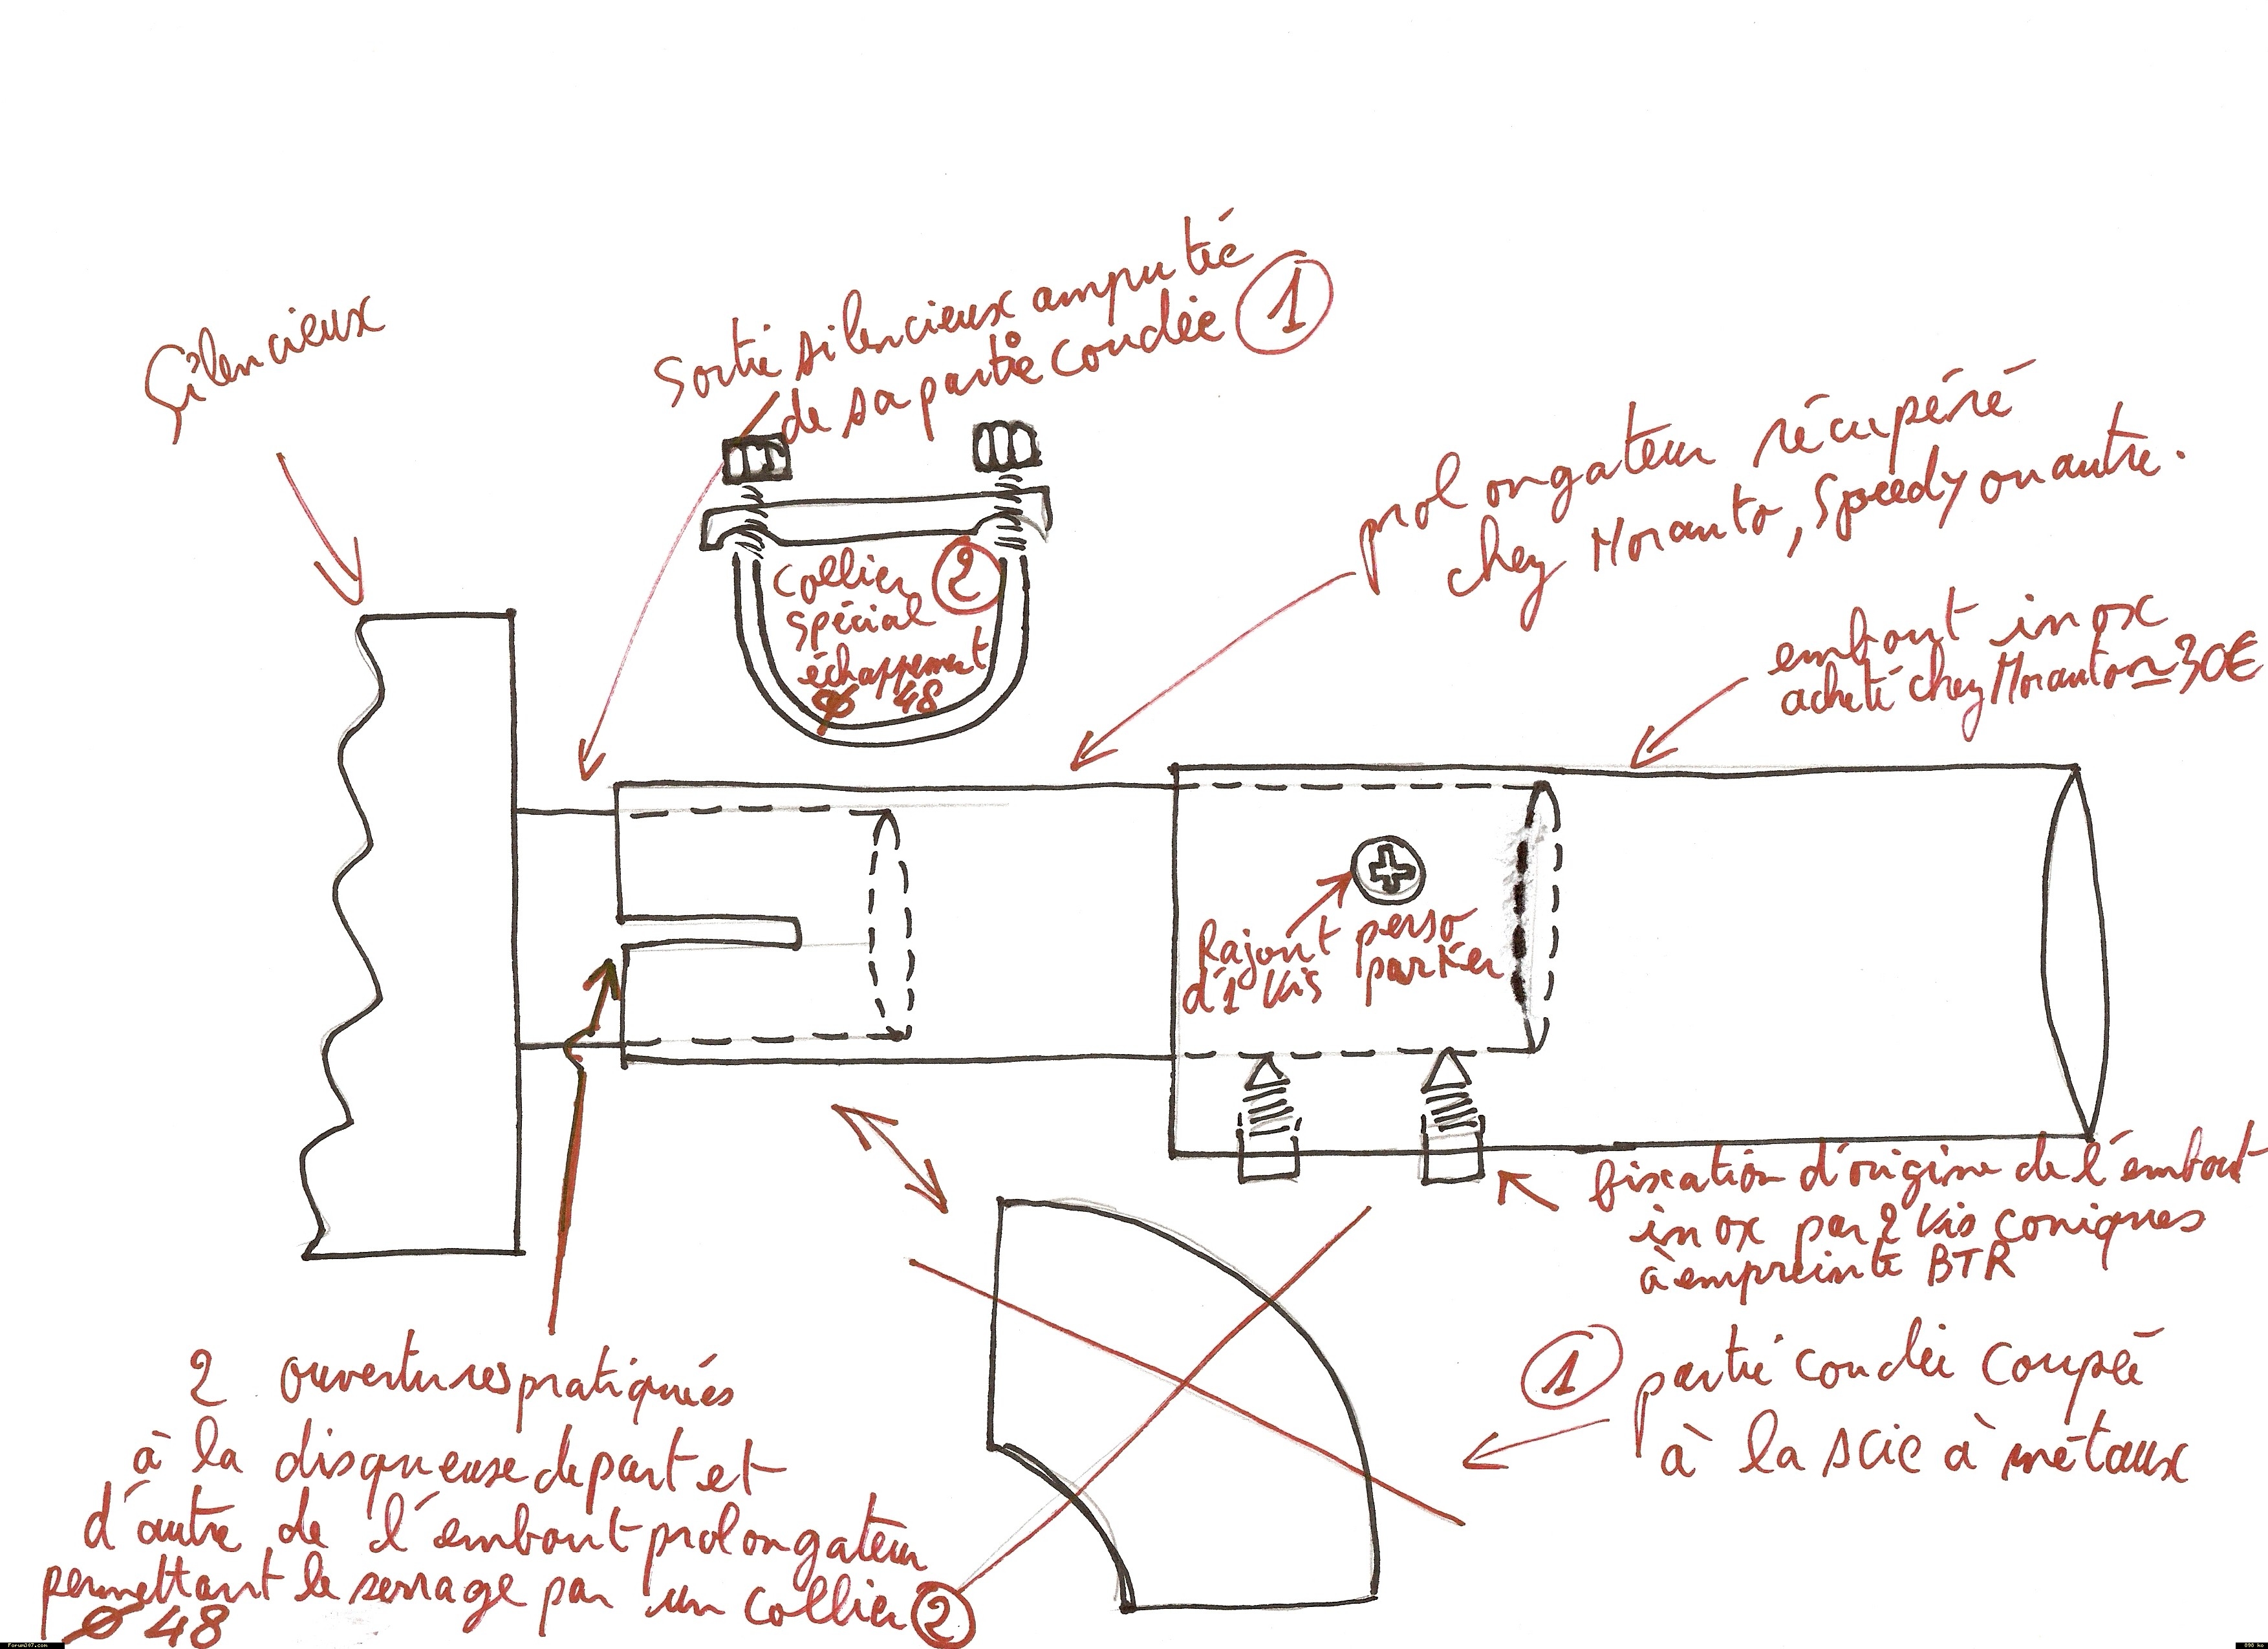 Silencieux
Sortie silencieux amputée
de sa partie coudée 1
prolongateur récupéré
chez Norauto, Speedy ou autre.
Collier 2
spécial
échappement
ø 48
embout inox
acheté chez Norauto ≃ 30€
Rajout perso
d'1 vis parker
fixation d'origine de l'embout
inox par 2 vis coniques
à empreinte BTR
1 partie coudée coupée
à la scie à métaux
2 ouvertures pratiquées
à la disqueuse de part et
d'autre de l'embout prolongateur
permettant le serrage par un collier 2
ø 48
Forum307.com